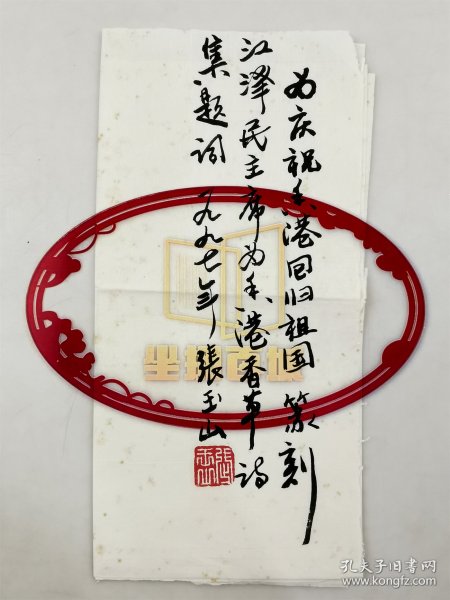 为庆祝香港回归祖国篆刻
江泽民主席为香港香草诗
集题词 一九九七年 張玉山
坐拥百城
孔夫子旧书网
www.kongfz.com